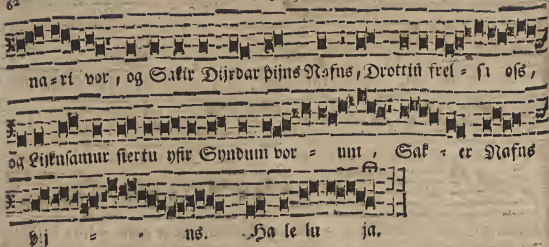 62
na=ri vor, og Sakir Dijrdar þijns Nafns, Drottiñ frel = sa oss,
og Lijknsamur siertu yfir Syndum vor = um, Sak = er Nafns
þij = = ns. Ha le lu ja.